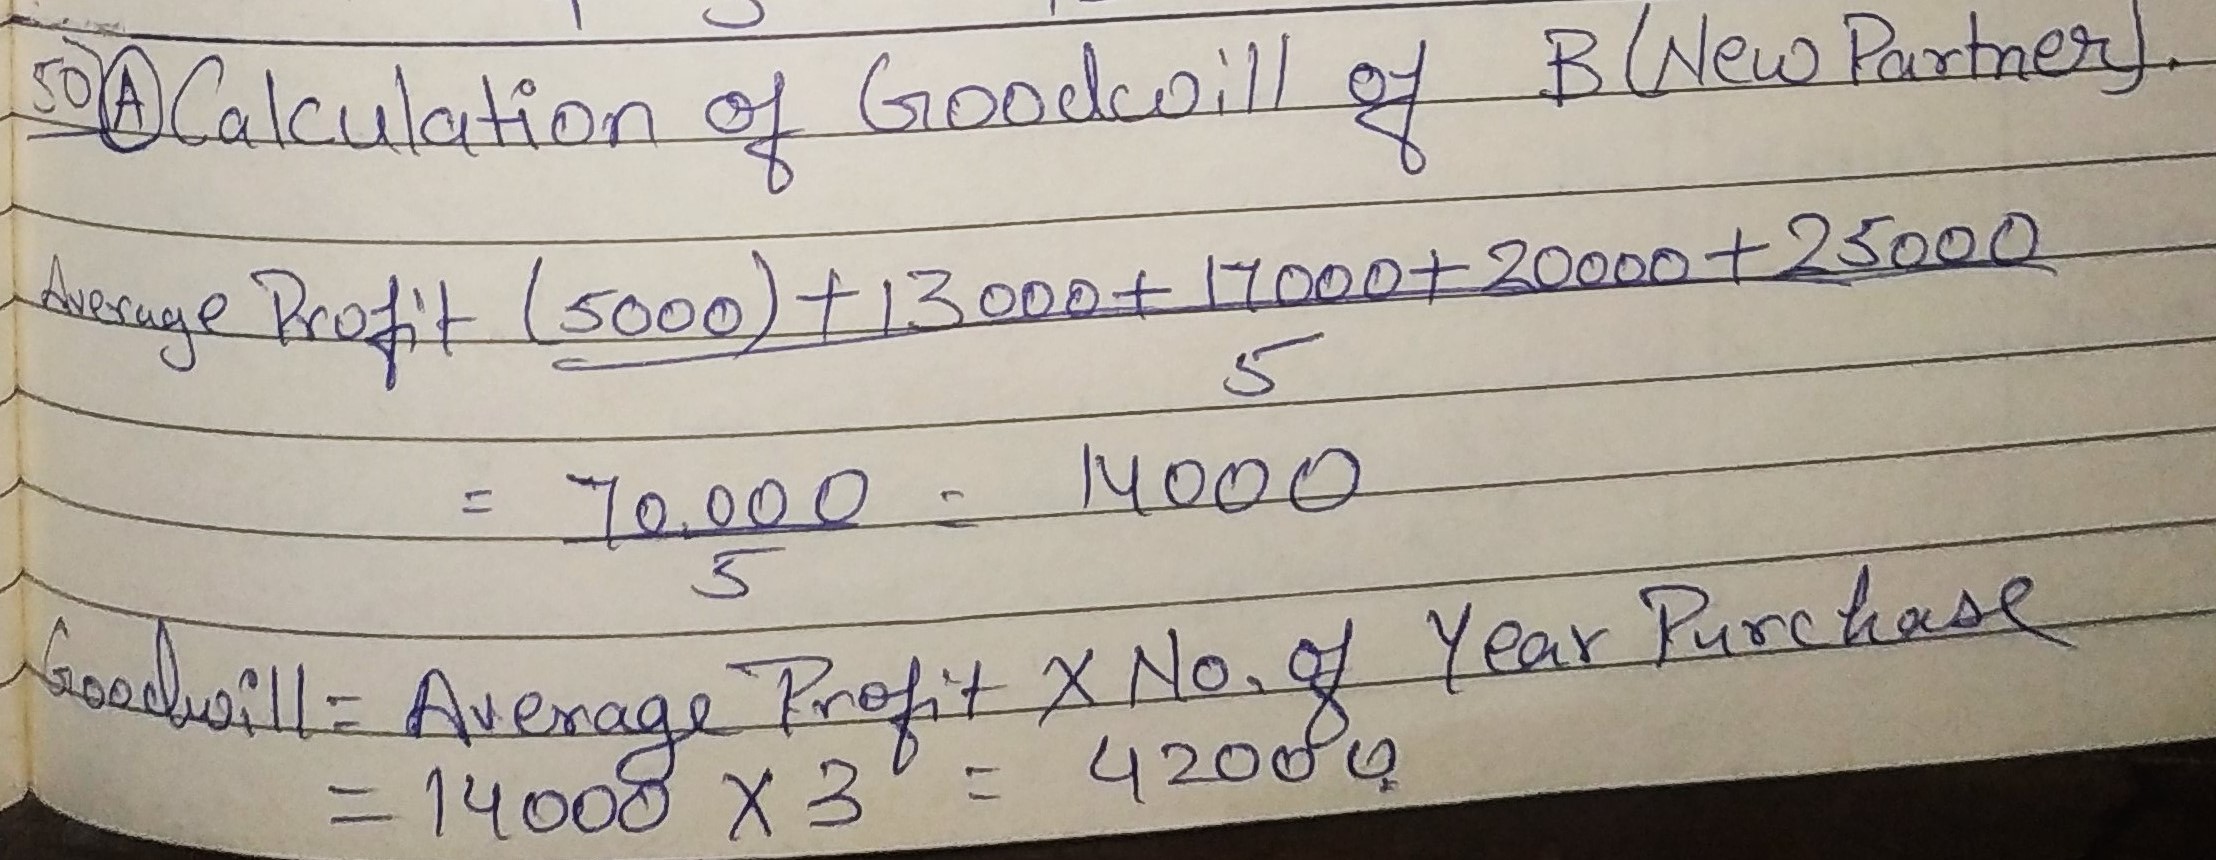 50) A Calculation of Goodwill of B (New Partner).
Average Profit (5000) + 13000 + 17000 + 20000 + 25000
5
= 70,000 = 14000
5
Goodwill = Average Profit X No. of Year Purchase
= 14000 X 3 = 42000